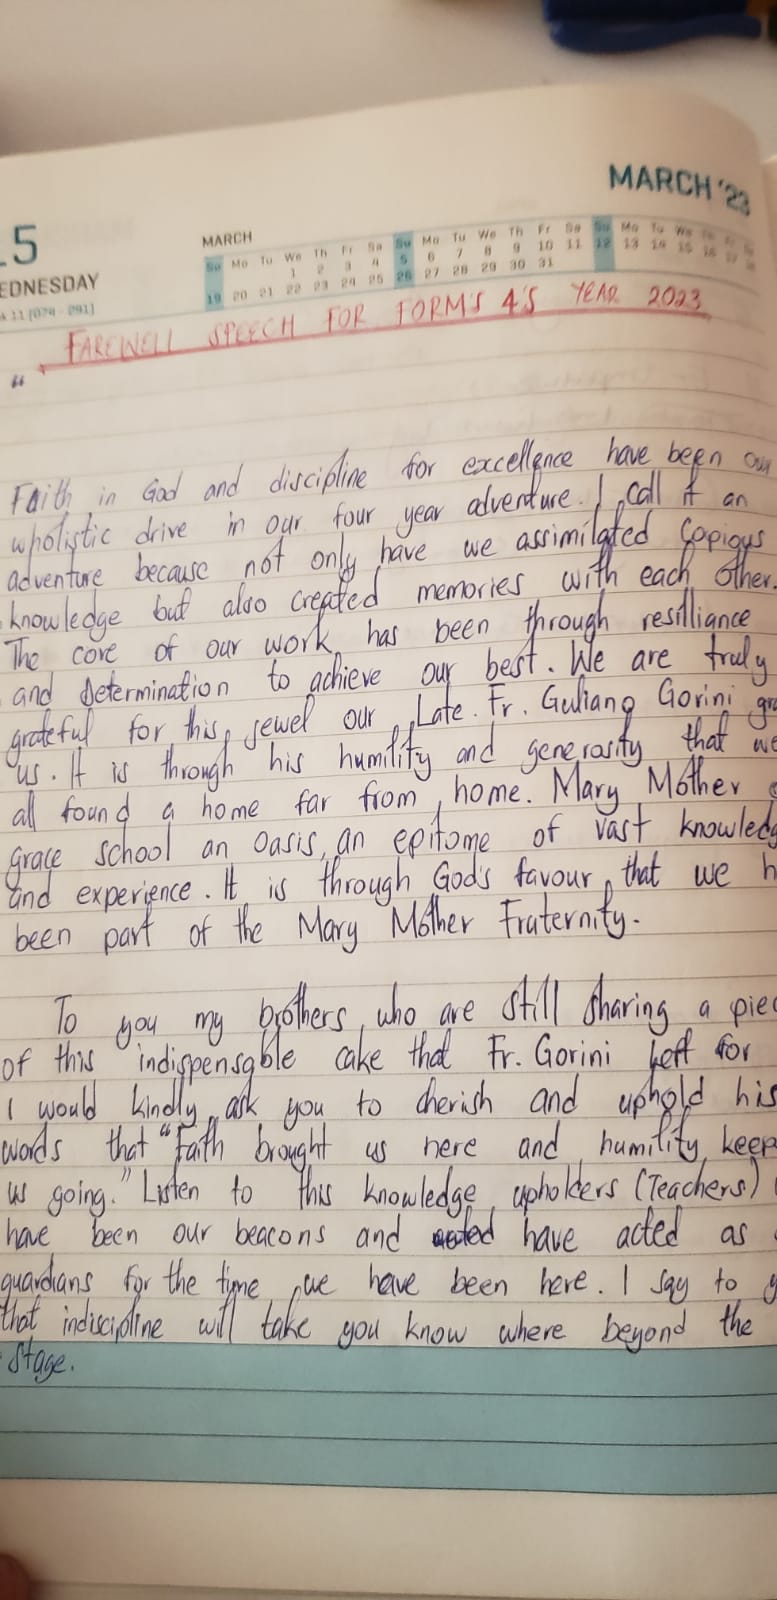 MARCH '23
5
EDNESDAY
MARCH
Su Mo Tu We Th Fr Sa Su Mo Tu We Th Fr Sa Su Mo Tu We Th
1 2 3 4 5 6 7 8 9 10 11 12 13 14 15 16 17
19 20 21 22 23 24 25 26 27 28 29 30 31
FAREWELL SPEECH FOR FORM'S 4'S YEAR 2023
"
Faith in God and discipline for excellence have been our
wholistic drive in our four year adventure. I call it an
adventure because not only have we assimilated copious
knowledge but also created memories with each other.
The core of our work has been through resilliance
and determination to achieve our best. We are truly
grateful for this jewel our Late. Fr. Guliano Gorini gra
us. It is through his humility and generosity that we
all found a home far from home. Mary Mother
grace school an oasis, an epitome of vast knowledg
and experience. It is through God's favour that we h
been part of the Mary Mother Fraternity.
To you my brothers who are still sharing a piec
of this indispensable cake that Fr. Gorini left for
I would kindly ask you to cherish and uphold his
words that "Faith brought us here and humility keep
us going." Listen to this knowledge upholders (Teachers)
have been our beacons and have acted as
guardians for the time we have been here. I say to y
that indiscipline will take you know where beyond the
stage.